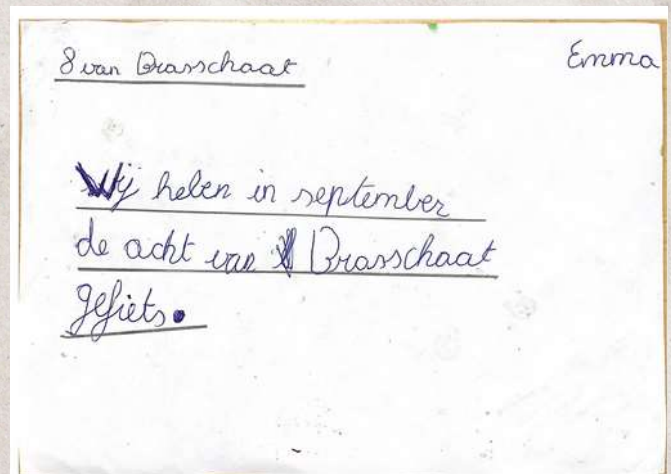 8 van Brasschaat
Emma
Wij heben in september
de acht van Brasschaat
gefiets.